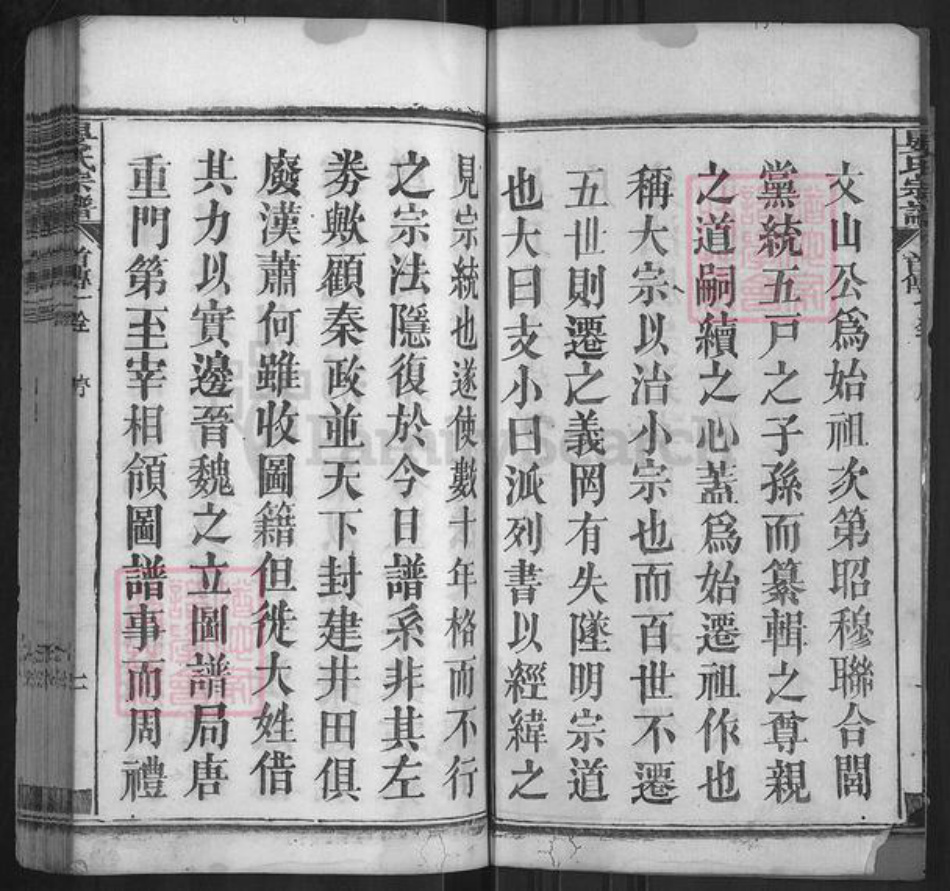 文山公爲始祖次第昭穆聯合閤
黨統五戶之子孫而纂輯之尊親
之道嗣續之心蓋爲始遷祖作也
稱大宗以治小宗也而百世不遷
五世則遷之義罔有失墜明宗道
也大曰支小曰派列書以經緯之
見宗統也遂使數十年格而不行
之宗法隱復於今日譜系非其左
劵歟顧秦政並天下封建井田俱
廢漢蕭何雖收圖籍但徙大姓借
其力以實邊晉魏之立圖譜局唐
重門第至宰相領圖譜事而周禮
氏宗譜
首傳一
序
FamilySearch